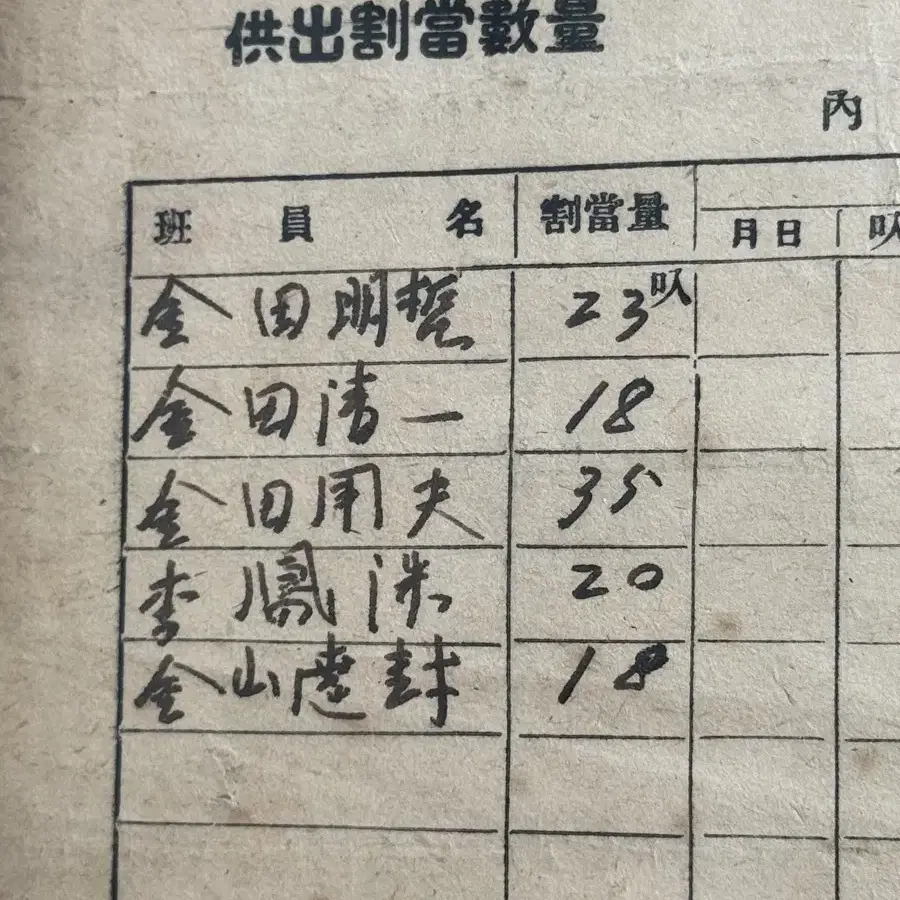 供出割當數量
內
班員名 割當量 月日 叺
金田明哲 23叺
金田清一 18
金田用夫 35
李鳳洙 20
金山 18